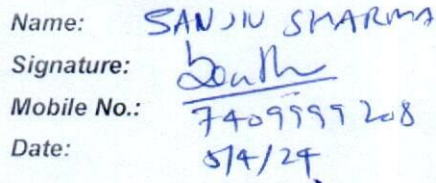 Name: SANJIV SHARMA
Signature:
Mobile No.: 7409999208
Date: 5/4/24